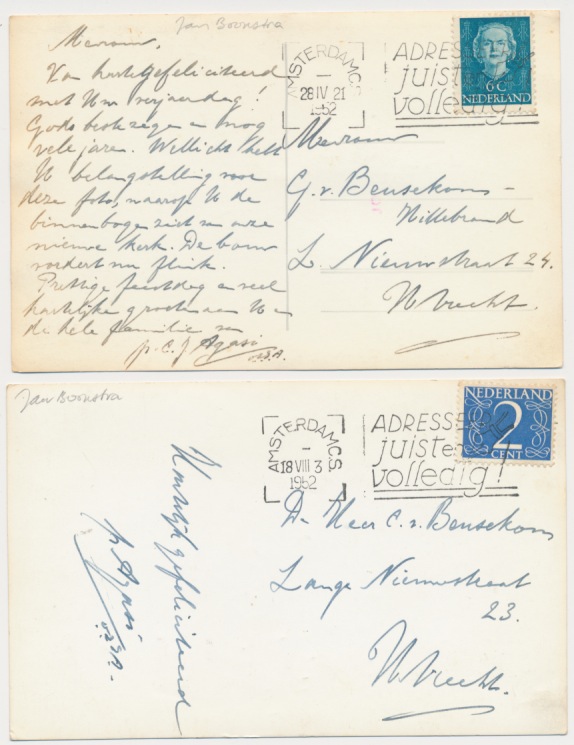 Jan Boonstra
Mevrouw,
Van harte gefeliciteerd
met Uw verjaardag!
Gods beste zegen en nog
vele jaren. Wellicht hebt
U belangstelling voor
deze foto, waarop U de
binnenboge ziet van onze
nieuwe kerk. De bouw
vordert nu flink.
Prettige feestdag en veel
hartelijke groeten aan U en
de hele familie van
p. C. J. Agasi
o.s.A.
AMSTERDAM C.S.
28 IV 21
1952
ADRESSEER
juist en
volledig!
6 C
NEDERLAND
Mevrouw
G. v. Beusekom-
Hillebrand
L. Nieuwstraat 24.
Utrecht.
Jan Boonstra
Hartelijk gefeliciteerd
p. Agasi
o.s.A.
AMSTERDAM C.S.
18 VIII 3
1952
ADRESSEER
juist en
volledig!
NEDERLAND
2
CENT
De Heer C. v. Beusekom
Lange Nieuwstraat
23.
Utrecht.